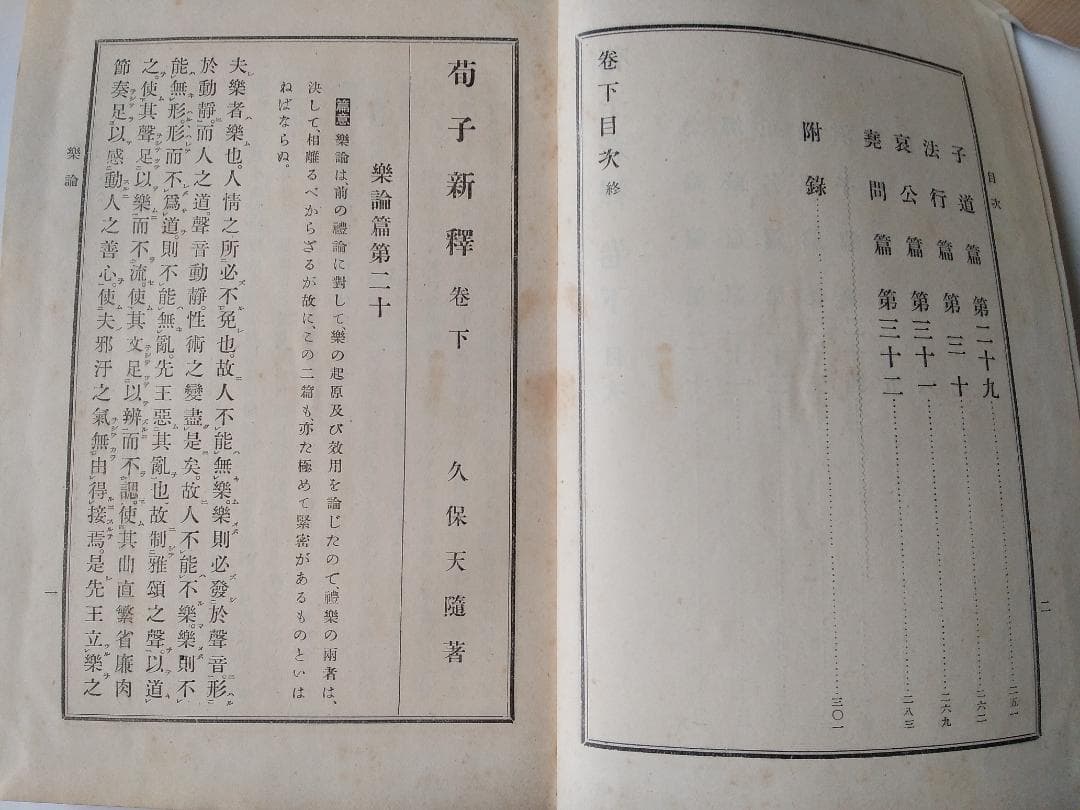 目次
子道篇第二十九……二五一
法行篇第三十……二六二
哀公篇第三十一……二六九
堯問篇第三十二……二八三
附錄……三〇一
卷下目次終
二
荀子新釋卷下 久保天隨著
樂論篇第二十
篇意 樂論は前の禮論に對して、樂の起原及び效用を論じたので、禮樂の兩者は、
決して、相離るべからざるが故に、この二篇も、亦た極めて緊密があるものといは
ねばならぬ。
夫樂者樂也。人情之所必不免也。故人不能無樂。樂則必發於聲音。形
於動靜。而人之道、聲音動靜。性術之變盡是矣。故人不能不樂。樂則不
能無形。形而不爲道。則不能無亂。先王惡其亂也。故制雅頌之聲。以道
之。使其聲足以樂而不流。使其文足以辨而不諰。使其曲直繁省廉肉
節奏足以感動人之善心。使夫邪汙之氣無由得接焉。是先王立樂之
樂論
一